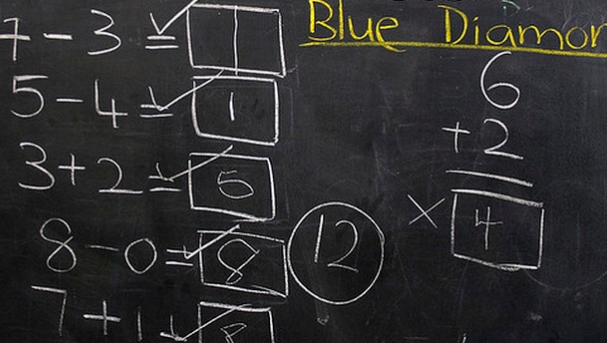 - 3 = 1
5 - 4 = 1
3 + 2 = 5
8 - 0 = 8
7 + 1 = 8
12
Blue Diamon
6
+ 2
× 4